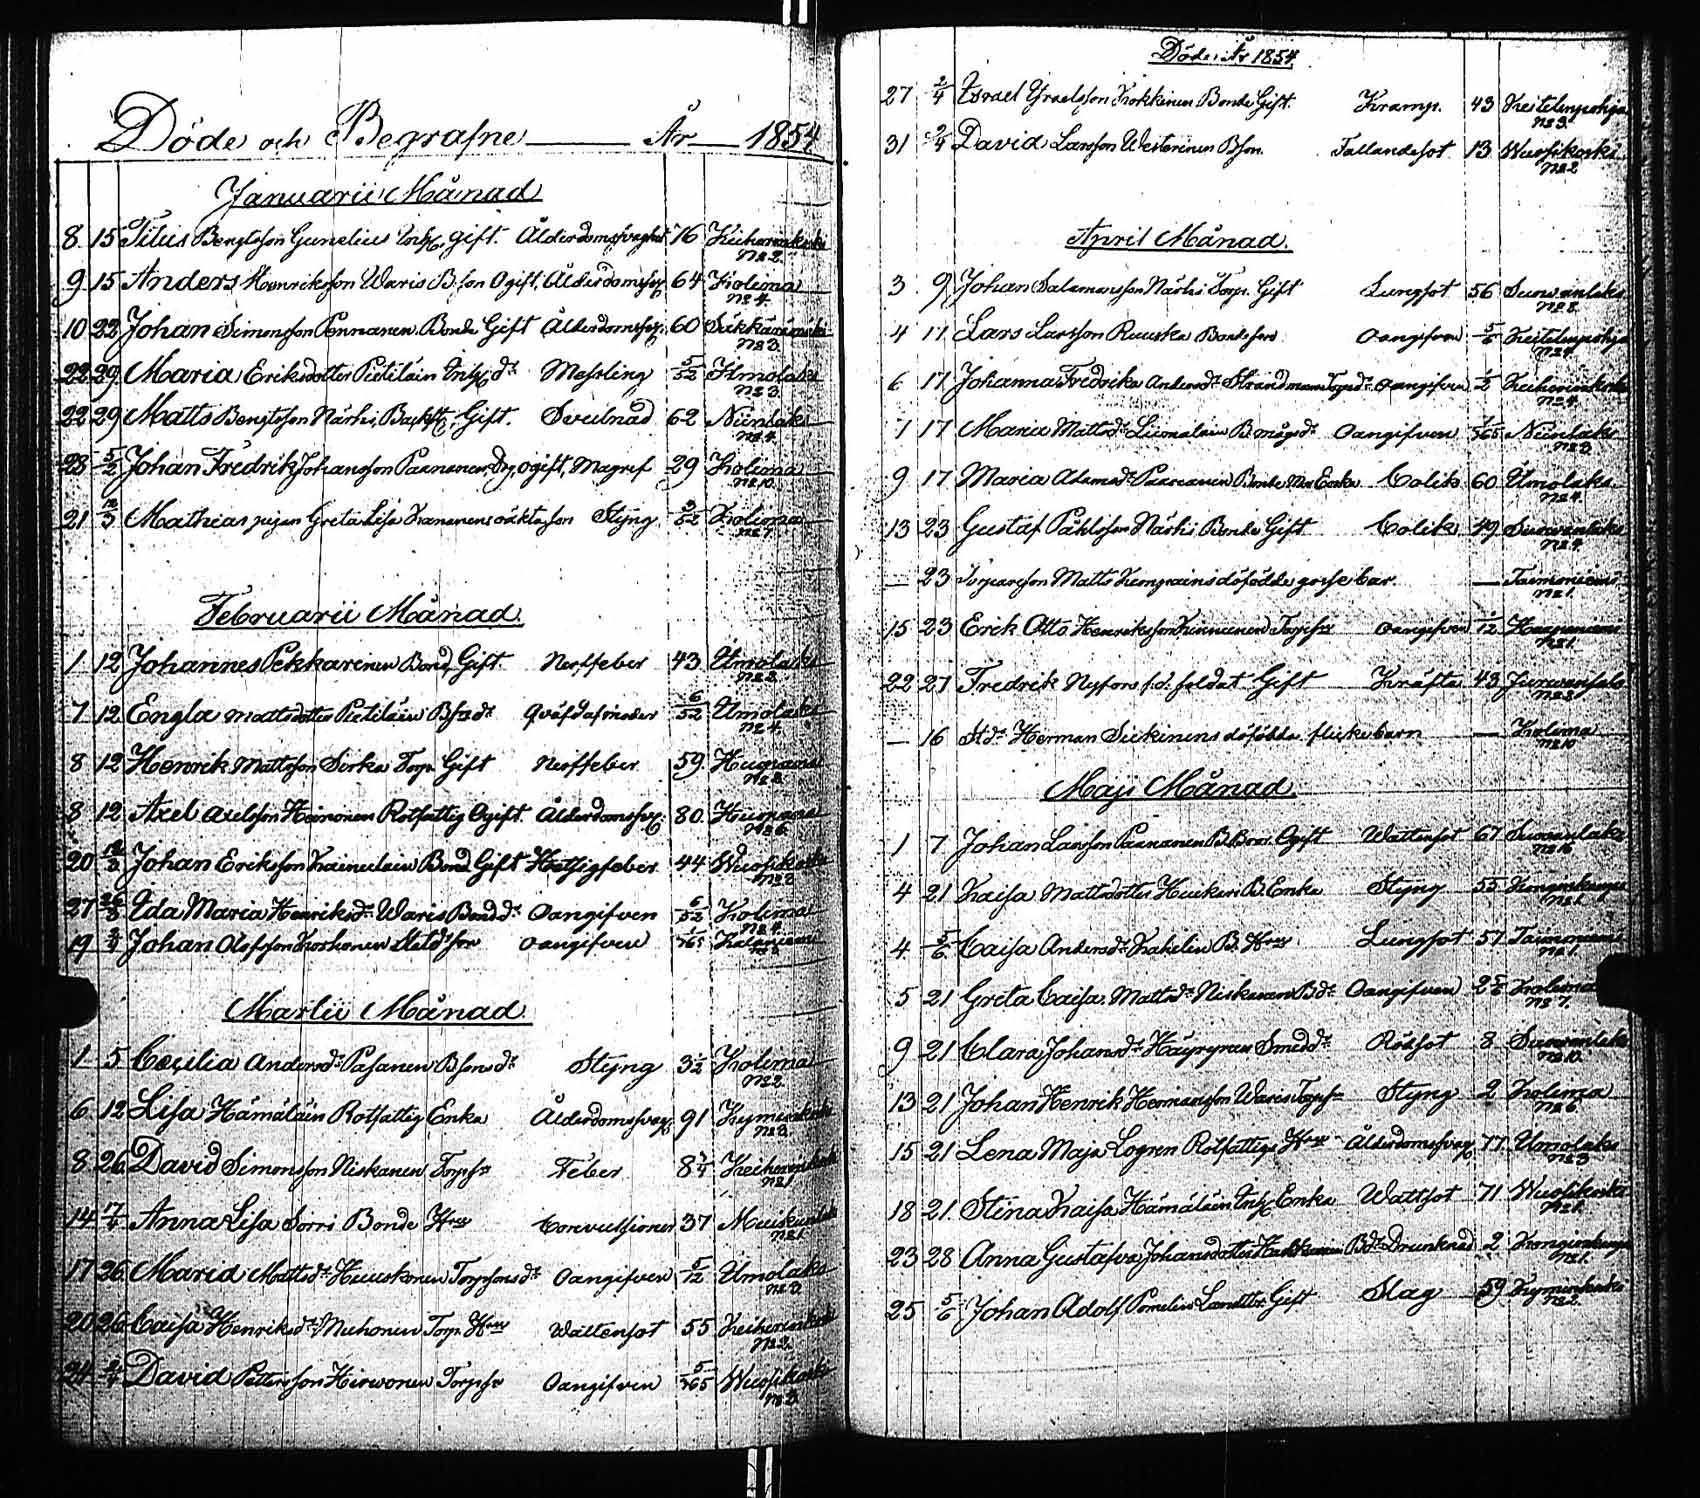 Döde och Begrafne År 1854
Januarii Månad
8 15 Titus Bengtsson Gunelius Inhs, gift. Ålderdomssvaghet 76 Keiherinkoski
No 2.
9 15 Anders Henriksson Waris B.son Ogift, Ålderdomssv. 64 Kolima
No 4.
10 22 Johan Simonsson Pennanen Bonde Gift Ålderdomssv. 60
No 3.
22 29 Maria Eriksdotter Pietiläin Inhs dr Messling 5/52 Ilmolaks
No 3.
22 29 Matts Bengtsson Närhi, Gift. Svulnad 62 Niinilaks
No 4.
25 5/2 Johan Fredrik Johansson Paananen Drg, ogift, Magref 29 Kolima
No 10.
21 12/3 Mathias pigan Greta Lisa Kananens oäkta son Styng 3/52 Kolima
No 7.
Februarii Månad
1 12 Johannes Pekkarinen Bond, Gift Nerffeber 43 Ilmolaks
No 3.
7 12 Engla Mattsdotter Pietiläin Bsns dr Qväfd af moder 6/52 Ilmolaks
No 4.
8 12 Henrik Mattsson Sirka Torp. Gift Nerffeber 59. Huopana
No 3.
8 12 Axel Axelsson Heinonen Rotfattig Ogift Ålderdomssv. 80. Huopana
No 6.
20 12/3 Johan Eriksson Kainulain Bond. Gift Hetsigfeber 44 Wuosikoski
No 2
27 26/3 Ida Maria Henriksdr Waris Bondedr Oangifven 6/52 Kolima
No 4.
19 2/4 Johan Olofsson Korhonen Oangifven 1/365
Martii Månad
1 5 Cecilia Andersdr Pasanen Bsonsdr Styng 3 1/2 Kolima
No 2.
6 12 Lisa Hämäläin Rotfattig Enka Ålderdomssvag. 91 Kymönkoski
No 3.
8 26 David Simonsson Niskanen Torpsn Feber 8 3/4 Keiherinkoski
No 1.
14 17/4 Anna Lisa Sorri Bonde Hru Convulsioner 37
No 1.
17 26. Maria Mattsdr Huuskonen Torpsonsdr Oangifven 5/12 Ilmolaks
No 3.
20 26 Caisa Henriksdr Muhonen Torp. Hru Wattensot 55 Keiherinkoski
No 2.
24 2/4 David Pettersson Hirwonen Torpsn Oangifven 5/365 Wuosikoski
No 3.
Döde År 1854.
27 2/4 Israel Israelsson Kokkinen Bonde Gift. Kramp. 43 Keitelenpohja
No 3.
31 2/4 David Larsson Westerinen Bson. Fallandesot 13 Wuosikoski
No 2
April Månad.
3 9 Johan Salamonsson Närhi Torp. Gift Lungsot 56 Suovanlaks
No 8.
4 17 Lars Larsson Ruuska Bondeson Oangifven 5/6 Keitelenpohja
No 4.
6 17 Johanna Fredrika Andersdr Strandman Torpdr Oangifven 1/2 Keiherinkoski
No 4.
7 17 Maria Mattsdr Liimatain B. mågsdr Oangifven 1/365 Niinilaks
No 3.
9 17 Maria Adamsdr Paananen Bonde Mor Enka Colik 60 Ilmolaks
No 4.
13 23 Gustaf Påhlsson Närhi Bonde Gift Colik 49 Suovanlaks
No 4.
— 23 Torparesson Matts Kumpulains döfödde gosse bar. — Taimoniemi
No 1.
15 23 Erik Otto Henriksson Kinnunen Torpsn Oangifven 1/12 Haapaniemi
No 1.
22 27 Fredrik Nyfors f.d. soldat Gift Kräfta 43
No 3.
— 16 Stdr Herman Siekinens döfödda flickebarn — Kolima
No 10
Maji Månad.
1 7 Johan Larsson Paananen B.Bror Ogift Wattensot 67 Suovanlaks
No 16
4 21 Kaisa Mattsdotter B. Enka Styng 55 Konginkangas
No 1.
4 5/6 Caisa Andersdr Kahelin B. Hru Lungsot 57 Taimoniemi
No 1.
5 21 Greta Caisa Mattsdr Niskanen Bdr Oangifven 2 5/6 Kolima
No 7.
9 21 Clara Johansdr Häyrynen Smedsdr Rödsot 8 Suovanlaks
No 10.
13 21 Johan Henrik Hermansson Waris Torpsn Styng 2 Kolima
No 6.
15 21 Lena Maja Logren Rotfattigs Hru Ålderdomssvag. 77. Ilmolaks
No 3
18 21. Stina Kaisa Hämäläin Inhs Enka Wattsot 71 Wuosikoski
No 1.
23 28 Anna Gustafva Johansdotter Bdr Drunknad 2 Konginkangas
No 1.
25 5/6 Johan Adolf Pomelius Landtbr. Gift Slag 59 Kymönkoski
No 2.